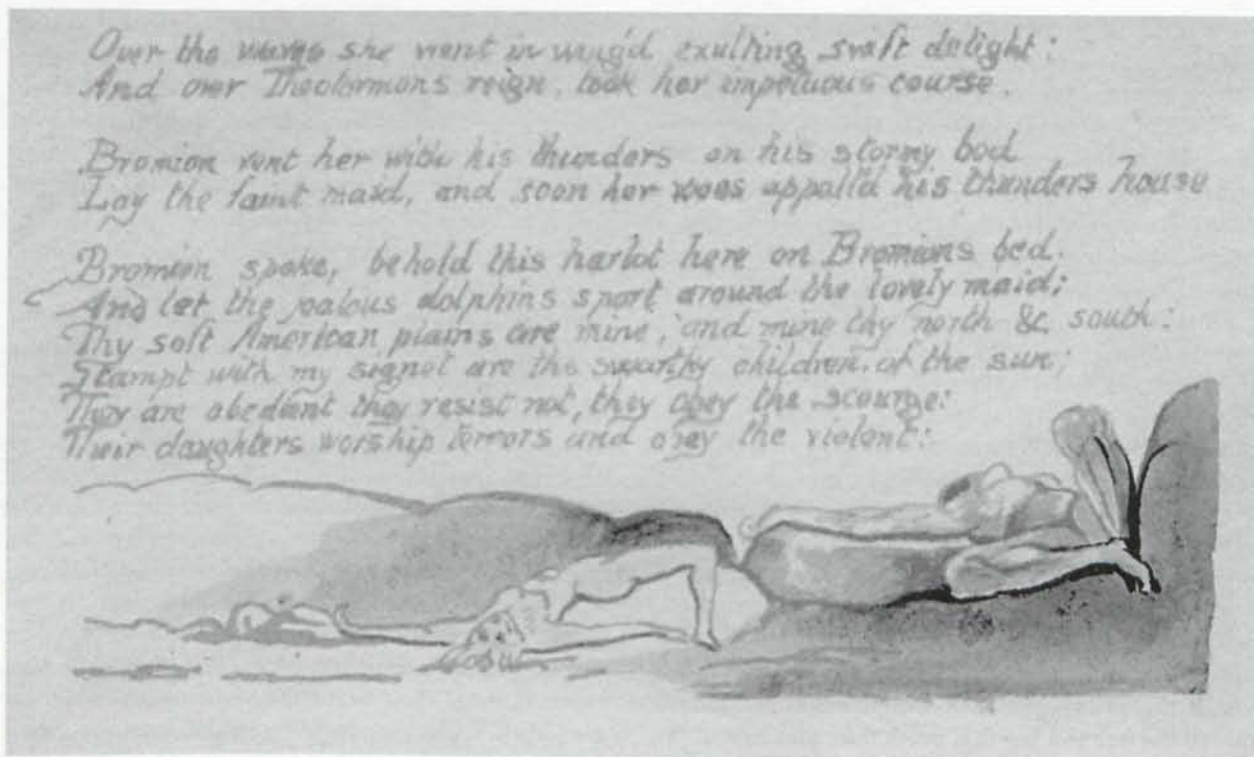 Over the waves she went in wing'd exulting swift delight:
And over Theotormons reign, took her impetuous course.
Bromion rent her with his thunders on his stormy bed
Lay the faint maid, and soon her woes appalld his thunders hoarse
Bromion spoke, behold this harlot here on Bromions bed.
And let the jealous dolphins sport around the lovely maid;
Thy soft American plains are mine, and mine thy north & south:
Stampt with my signet are the swarthy children of the sun;
They are obedient they resist not, they obey the scourge:
Their daughters worship terrors and obey the violent: